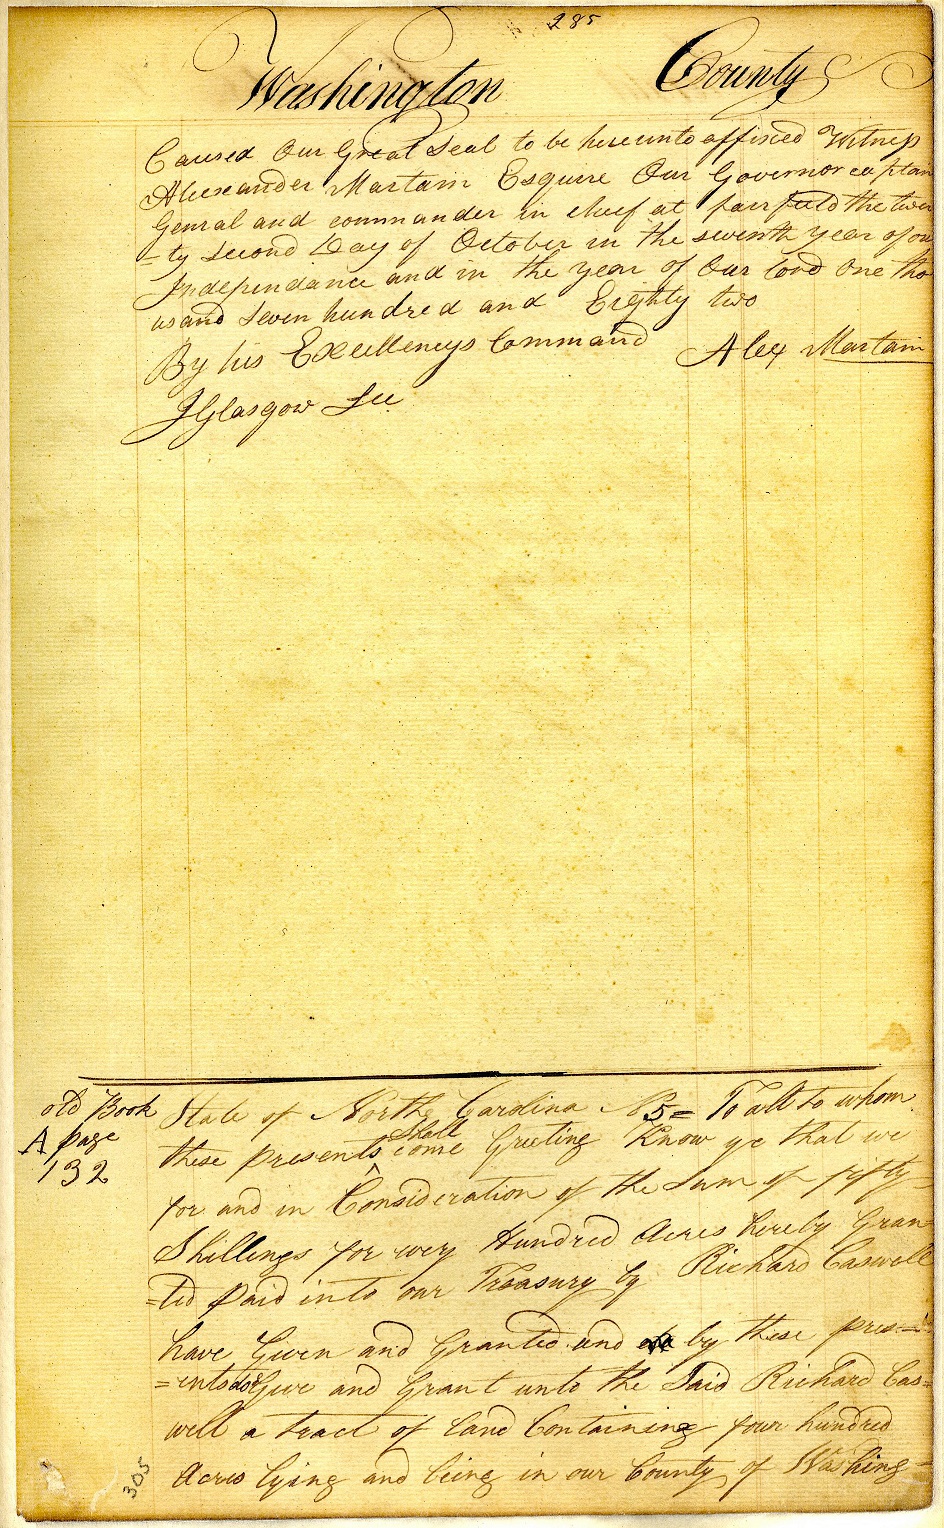 285
Washington County
Caused Our Great Seal to be hereunto affixed Witness
Alexander Martain Esquire Our Governor captan
Genral and commander in cheef at fairfield the twen
=ty second Day of October in the seventh year of ou
Independance and in the year of Our Lord One tho
usand Seven hundred and Eighty two
By his Excellencys Command Alex Martain
JGlasgow Sec
old Book
A page
132
State of North Carolina No 5= To all to whom
these presents shall come Greeting Know ye that we
for and in Consideration of the Sum of fifty
Shillings for every Hundred Acres hereby Gran
=ted paid into our Treasury by Richard Caswell
have Given and Granted and by these pres=
=ents do Give and Grant unto the Said Richard Cas=
well a tract of Land Containing four hundred
Acres lying and being in our County of Washing=
305